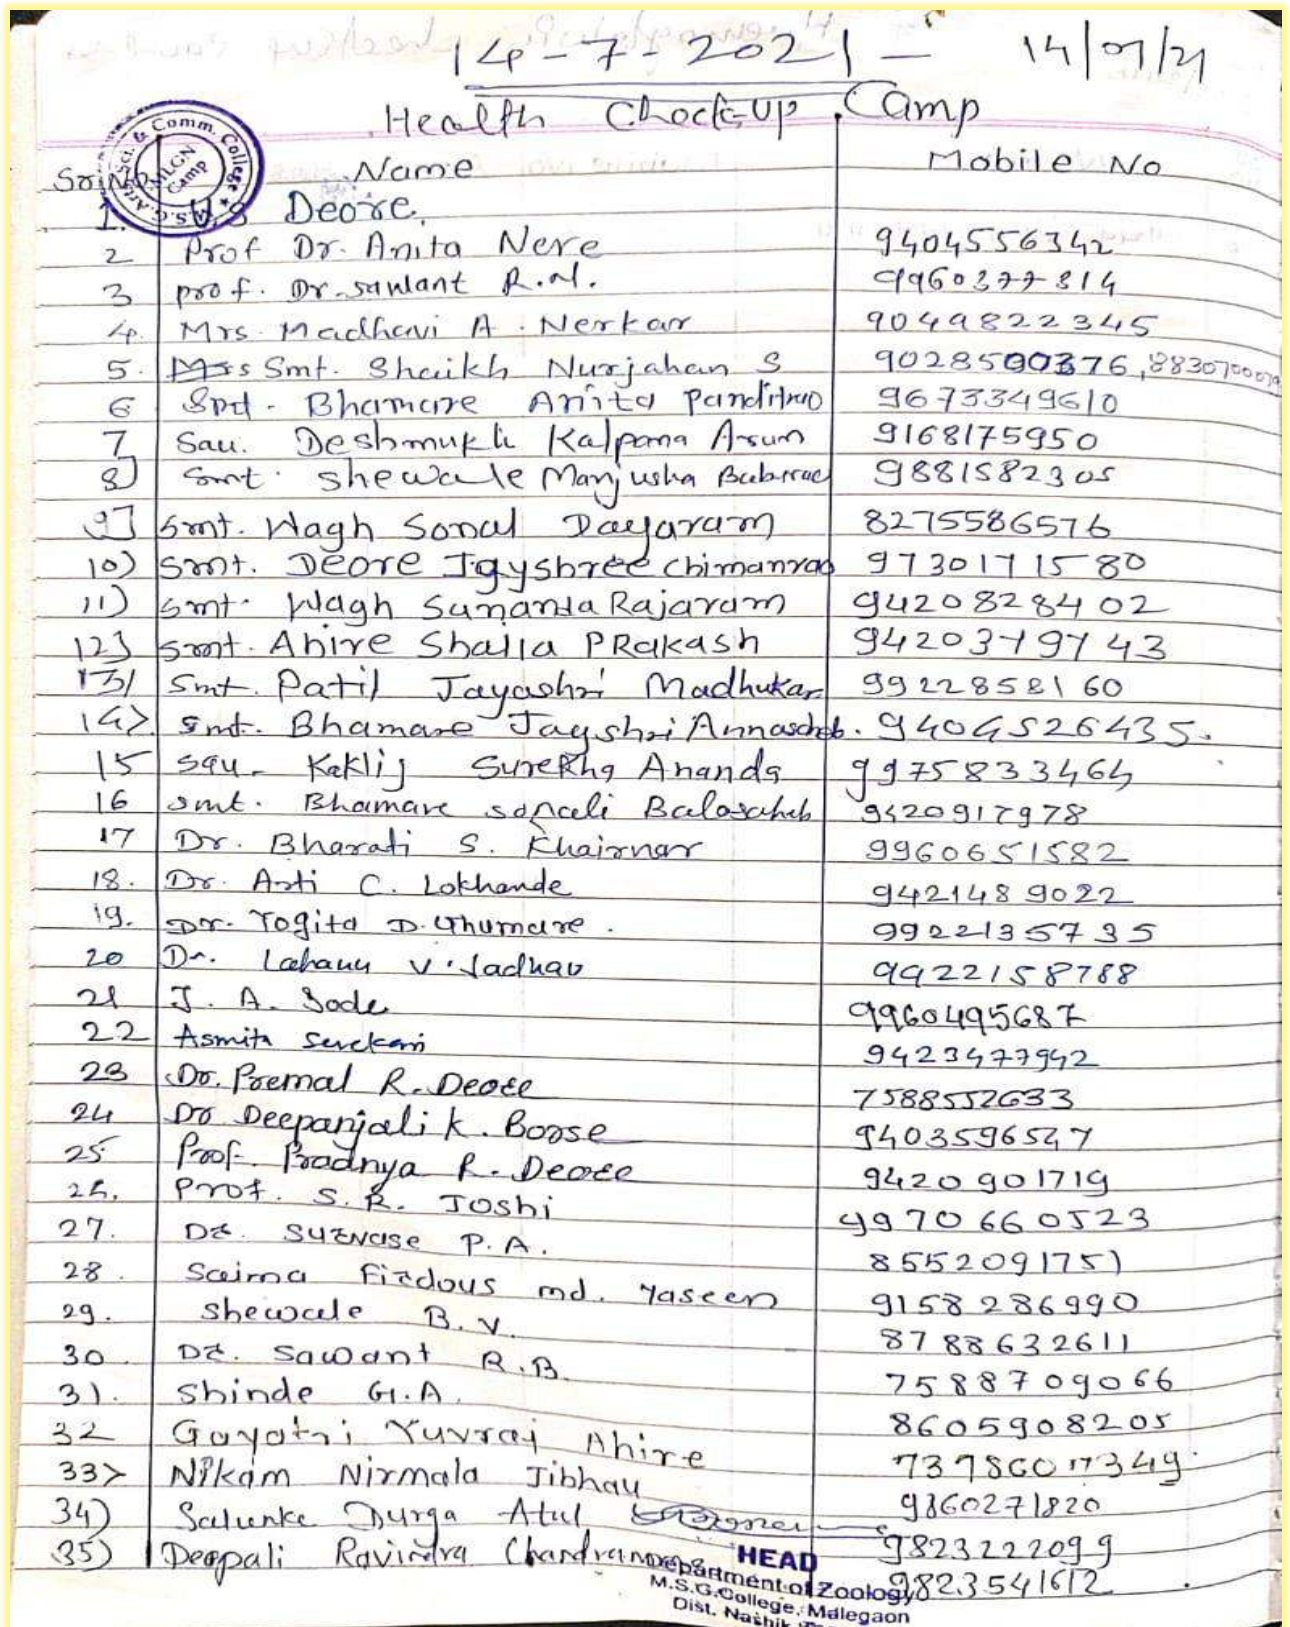 14-7-2021 - 14/07/21
Health Check-up Camp
M.S.G. Arts, Sci. & Comm. College
MLGN Camp
Sr.No. Name Mobile No
1. Deore.
2 Prof Dr. Anita Nere 9404556342
3 prof. Dr. Sawant R.N. 9960377314
4. Mrs. Madhavi A. Nerkar 9049822345
5. Smt. Shaikh Nurjahan S 9028500376,
6 Bhamare Anita Panditrao 9673349610
7 Sau. Deshmukh Kalpana Arun 9168175950
8] Smt. shewale Manjusha Baburao 9881582305
9] Smt. Wagh Sonal Dayaram 8275586576
10) Smt. Deore Jayshree Chimanrao 9730171580
11) Smt. Wagh Sunanda Rajaram 9420828402
12] Smt. Ahire Shaila PRakash 9420379743
13] Smt. Patil Jayashri Madhukar 9922858160
14> Smt. Bhamare Jayshri Annasaheb. 9404526435.
15 Sau. Kaklij Surekha Ananda 9975833464
16 Smt. Bhamare sonali Balasaheb 9420917978
17 Dr. Bharati S. Khairnar 9960651582
18. Dr. Arti C. Lokhande 9421489022
19. Dr. Yogita D. Ghumare. 9922135735
20 Dr. Lahanu V. Jadhav 9922158788
21 J. A. Sode 9960495687
22 Asmita 9423477942
23 Dr. Premal R. Deore 7588552633
24 Dr Deepanjali K. Borse 9403596547
25 Prof. Pradnya R. Deore 9420901719
26. Prof. S.R. Joshi 9970660523
27. Dr. Survase P.A. 8552091751
28. Saima Firdous md. Yaseen 9158286990
29. Shewale B.V. 8788632611
30. Dr. Sawant R.B. 7588709066
31. Shinde G.A. 8605908205
32 Gayatri Yuvraj Ahire
33> Nikam Nirmala Jibhau 9860271820
34) Salunke Durga Atul 9823222099
35) Deepali Ravindra 9823541612
HEAD
Department of Zoology
M.S.G.College, Malegaon
Dist. Nashik